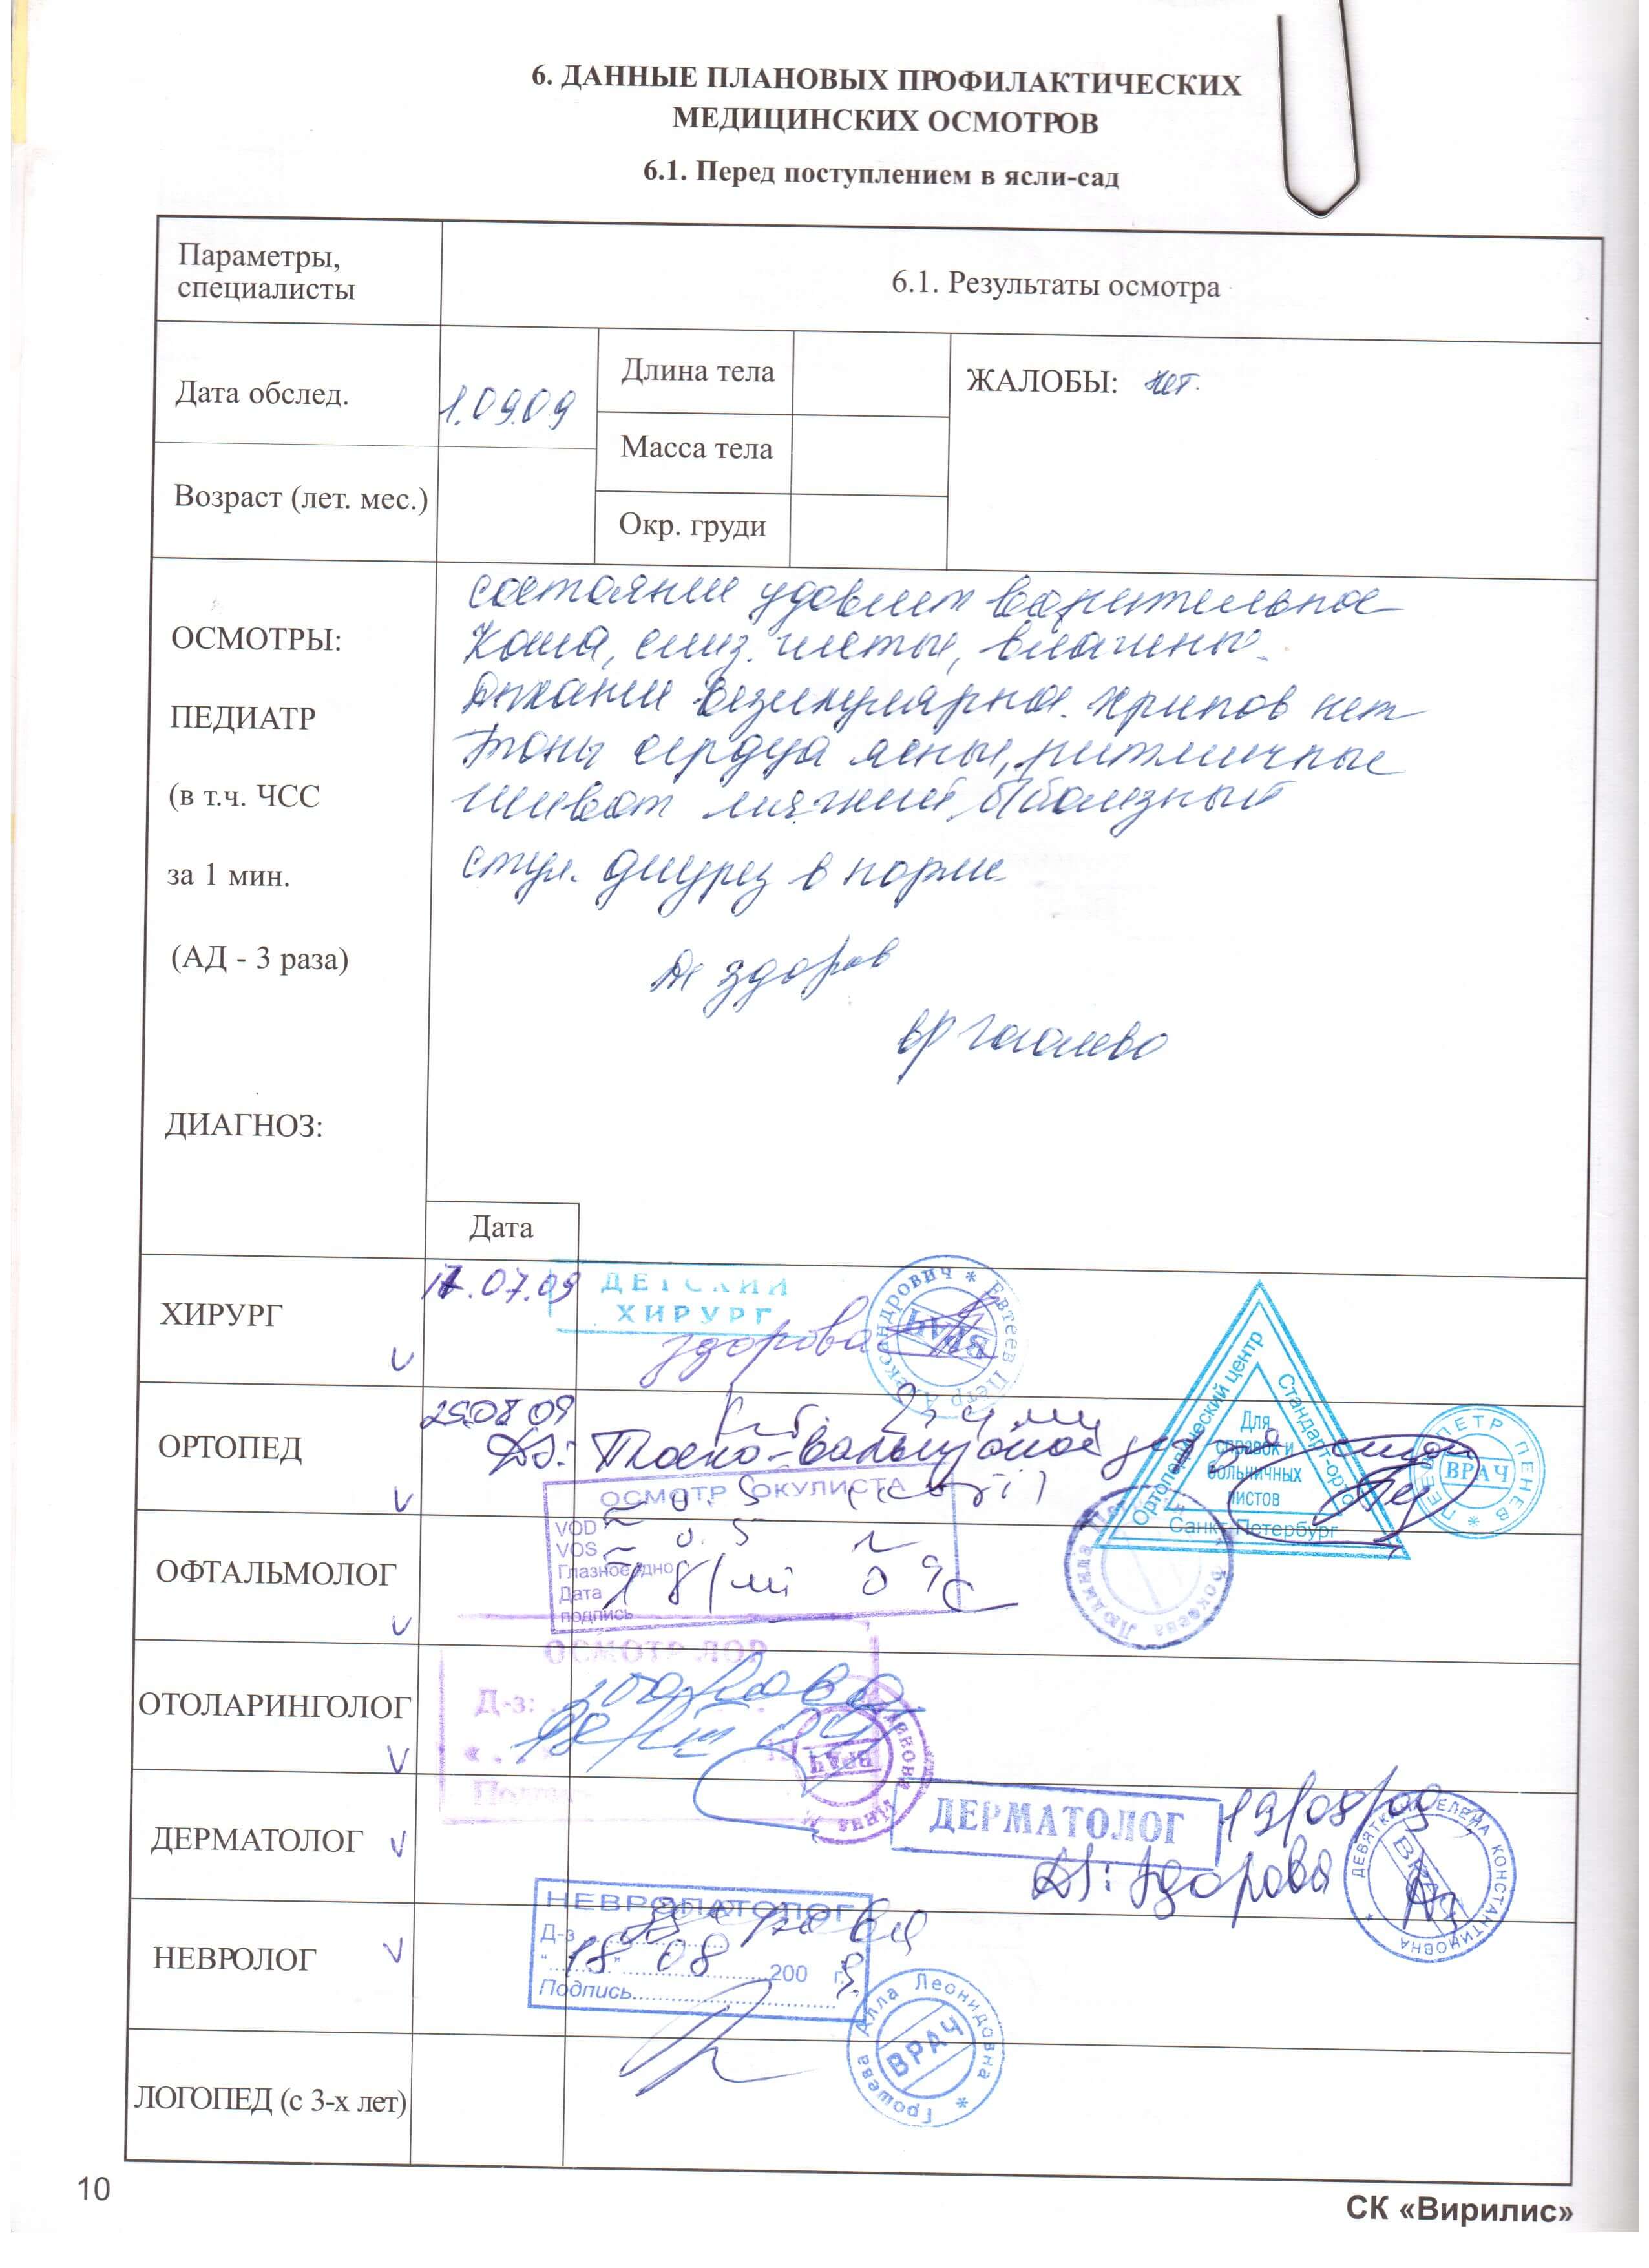 6. ДАННЫЕ ПЛАНОВЫХ ПРОФИЛАКТИЧЕСКИХ
МЕДИЦИНСКИХ ОСМОТРОВ
6.1. Перед поступлением в ясли-сад
Параметры,
специалисты
6.1. Результаты осмотра
Дата обслед.
1.09.09
Длина тела
ЖАЛОБЫ: нет.
Масса тела
Возраст (лет. мес.)
Окр. груди
ОСМОТРЫ:
ПЕДИАТР
(в т.ч. ЧСС
за 1 мин.
(АД - 3 раза)
ДИАГНОЗ:
состояние удовлетворительное
Кожа, слиз. чистые, влажные.
Дыхание везикулярное. хрипов нет
Тоны сердца ясные, ритмичные
живот мягкий, б/болезный
стул. диурез в норме
Ds здоров
вр Гоголева
Дата
ХИРУРГ
17.07.09
ДЕТСКИЙ
ХИРУРГ
здорова
Евтеев Пётр Александрович
ВРАЧ
ОРТОПЕД
25.08 09
Ds: Плоско-вальгусные
Ортопедический центр
Стандарт-орто
Санкт-Петербург
Для
справок и
больничных
листов
ПЕНЕВ ПЕТР ПЕНЕВ
ВРАЧ
ОФТАЛЬМОЛОГ
ОСМОТР ОКУЛИСТА
VOD ≈ 0.5
VOS ≈ 0.5
Глазное дно
Дата 18/VIII 09
подпись
Людмила
ОТОЛАРИНГОЛОГ
ОСМОТР ЛОР
Д-з: здорова
18/VIII 09
ВРАЧ
ДЕРМАТОЛОГ
ДЕРМАТОЛОГ
19/08/09
Ds: здорова
ДЕВЯТКИНА ЕЛЕНА КОНСТАНТИНОВНА
ВРАЧ
НЕВРОЛОГ
НЕВРОПАТОЛОГ
Д-з здорова
"18" 08 2009 г.
Подпись
Грошева Алла Леонидовна
ВРАЧ
ЛОГОПЕД (с 3-х лет)
10
СК «Вирилис»